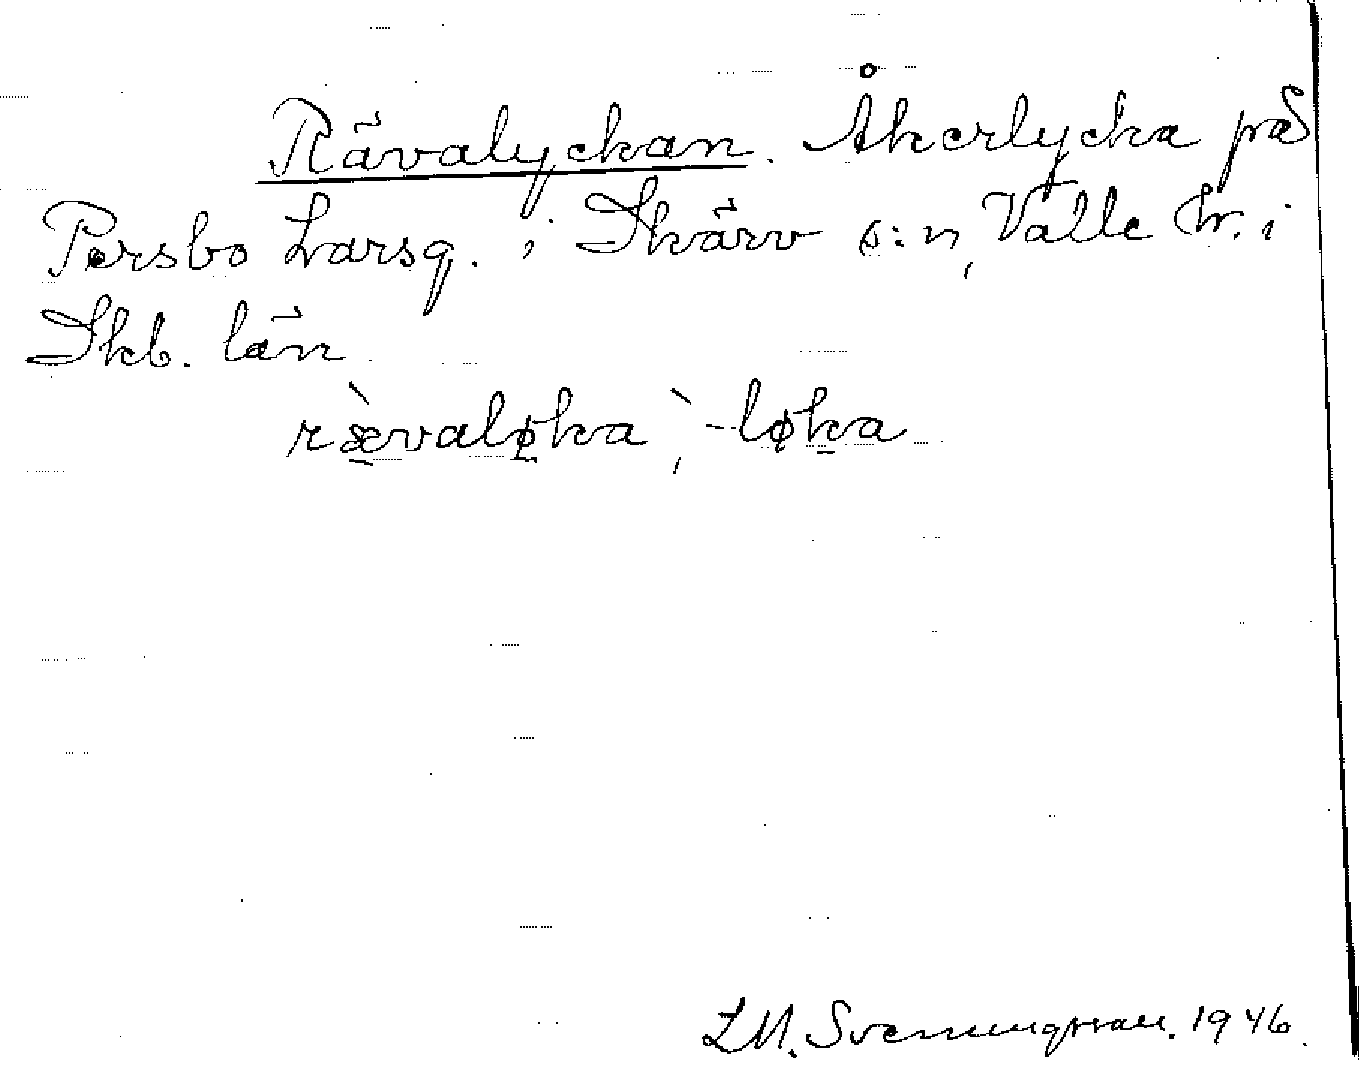 Rävalyckan. Åkerlycka på
Persbo Larsg. i Skärv s:n, Valle hr. i
Skb. län
rævaløka, -løka
L.M. Svenungsson. 1946.